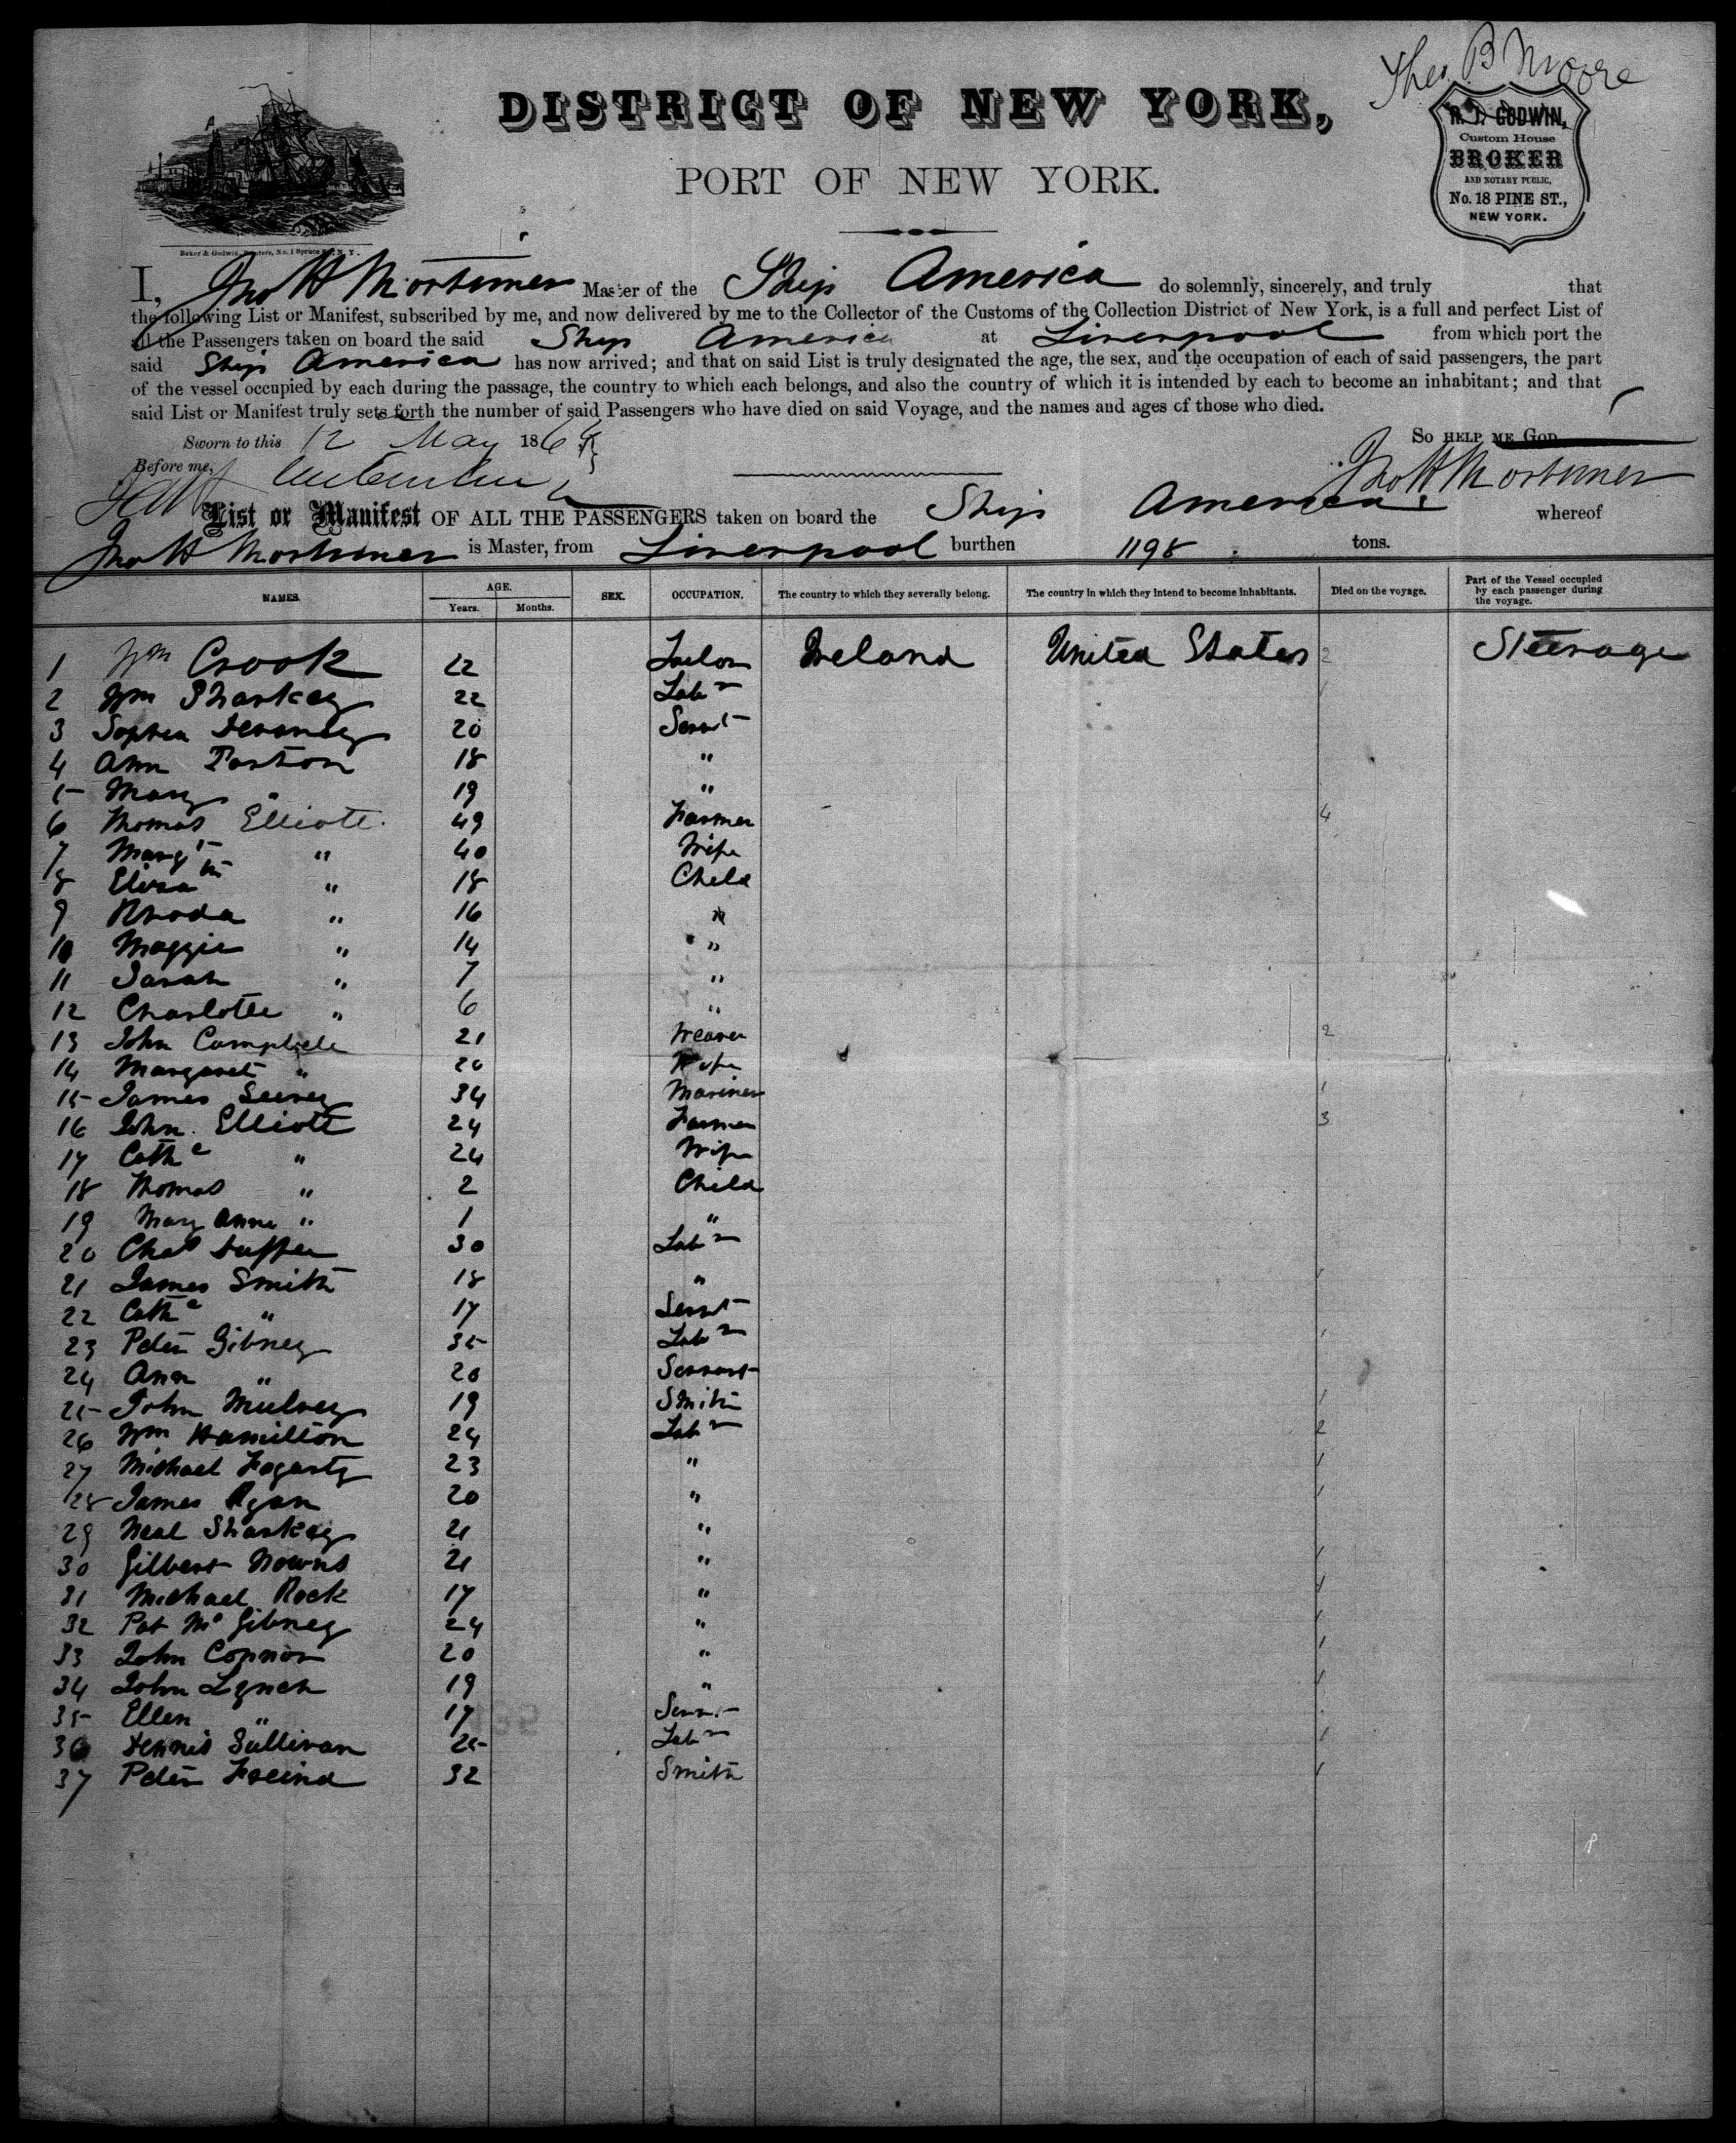 Theo B Moore
DISTRICT OF NEW YORK,
PORT OF NEW YORK.
R. J. GODWIN,
Custom House
BROKER
AND NOTARY PUBLIC,
No. 18 PINE ST.,
NEW YORK.
Baker & Godwin, Printers, No. 1 Spruce St., N. Y.
I, Jno H Mortimer Master of the Ship America do solemnly, sincerely, and truly that
the following List or Manifest, subscribed by me, and now delivered by me to the Collector of the Customs of the Collection District of New York, is a full and perfect List of
all the Passengers taken on board the said Ship America at Liverpool from which port the
said Ship America has now arrived; and that on said List is truly designated the age, the sex, and the occupation of each of said passengers, the part
of the vessel occupied by each during the passage, the country to which each belongs, and also the country of which it is intended by each to become an inhabitant; and that
said List or Manifest truly sets forth the number of said Passengers who have died on said Voyage, and the names and ages of those who died.
Sworn to this 12 May 1864 So HELP ME GOD
Before me, Jno H Mortimer
List or Manifest OF ALL THE PASSENGERS taken on board the Ship America whereof
Jno H Mortimer is Master, from Liverpool burthen 1198 tons.
NAMES. AGE. Years. Months. SEX. OCCUPATION. The country to which they severally belong. The country in which they intend to become inhabitants. Died on the voyage. Part of the Vessel occupied by each passenger during the voyage.
1 Wm Crook 22 Tailor Ireland United States 2 Steerage
2 Wm Sharkey 22 Labr 1
3 Sophia 20 Servt
4 Ann 18 "
5 Mary " 19 "
6 Thomas Elliott 49 Farmer 4
7 Margt " 40 Wife
8 Eliza " 18 Child
9 Rhoda " 16 "
10 Maggie " 14 "
11 Sarah " 7 "
12 Charlotte " 6 "
13 John Campbell 21 Weaver 2
14 Margaret " 20 Wife
15 James 34 Mariner 1
16 John Elliott 24 Farmer 3
17 Cathe " 24 Wife
18 Thomas " 2 Child
19 Mary Anne " 1 "
20 Chas Duffen 30 Labr
21 James Smith 18 " 1
22 Cathe " 17 Servt
23 Peter Gibney 35 Labr 1
24 Ann " 20 Servant
25 John Mulvey 19 Smith 1
26 Wm Hamilton 24 Labr 2
27 Michael Fogarty 23 " 1
28 James Ryan 20 " 1
29 Neal Sharkey 21 "
30 Gilbert Nowns 21 " 1
31 Michael Rock 17 " 1
32 Pat Mc Gibney 24 " 1
33 John Connor 20 " 1
34 John Lynch 19 " 1
35 Ellen " 17 Servt
36 Dennis Sullivan 25 Labr 1
37 Peter Freind 32 Smith 1